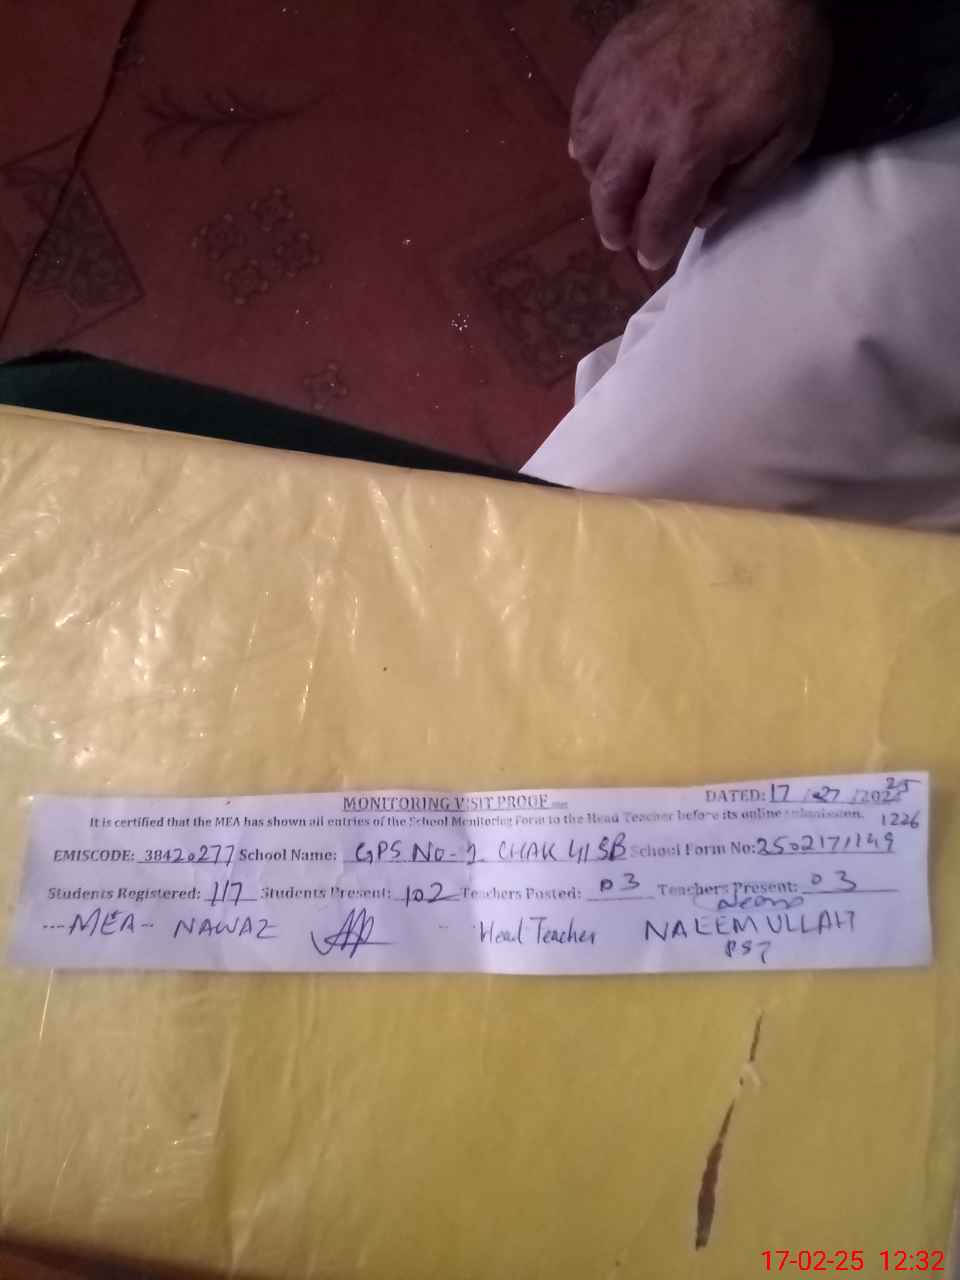 MONITORING VISIT PROOF
DATED: 17 / 27 / 2025
It is certified that the MEA has shown all entries of the School Monitoring Form to the Head Teacher before its online submission.
1226
EMISCODE: 38420277 School Name: GPS NO-1 CHAK 41 SB School Form No: 250217/149
Students Registered: 117 Students Present: 102 Teachers Posted: 03 Teachers Present: 03
---MEA-- NAWAZ Head Teacher NAEEM ULLAH
PST
17-02-25 12:32